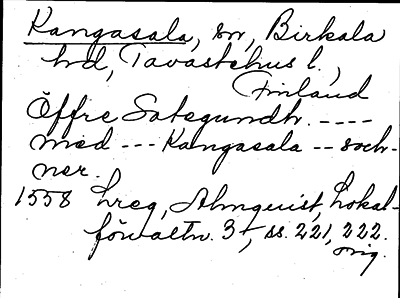 Kangasala, sn, Birkala
hd, Tavastehus l.,
Finland
Öffre Satagundh. ----
med --- Kangasala -- sock-
ner.
1558 hreg, Almquist, Lokal-
förvaltn. 3, ss. 221, 222.
orig.